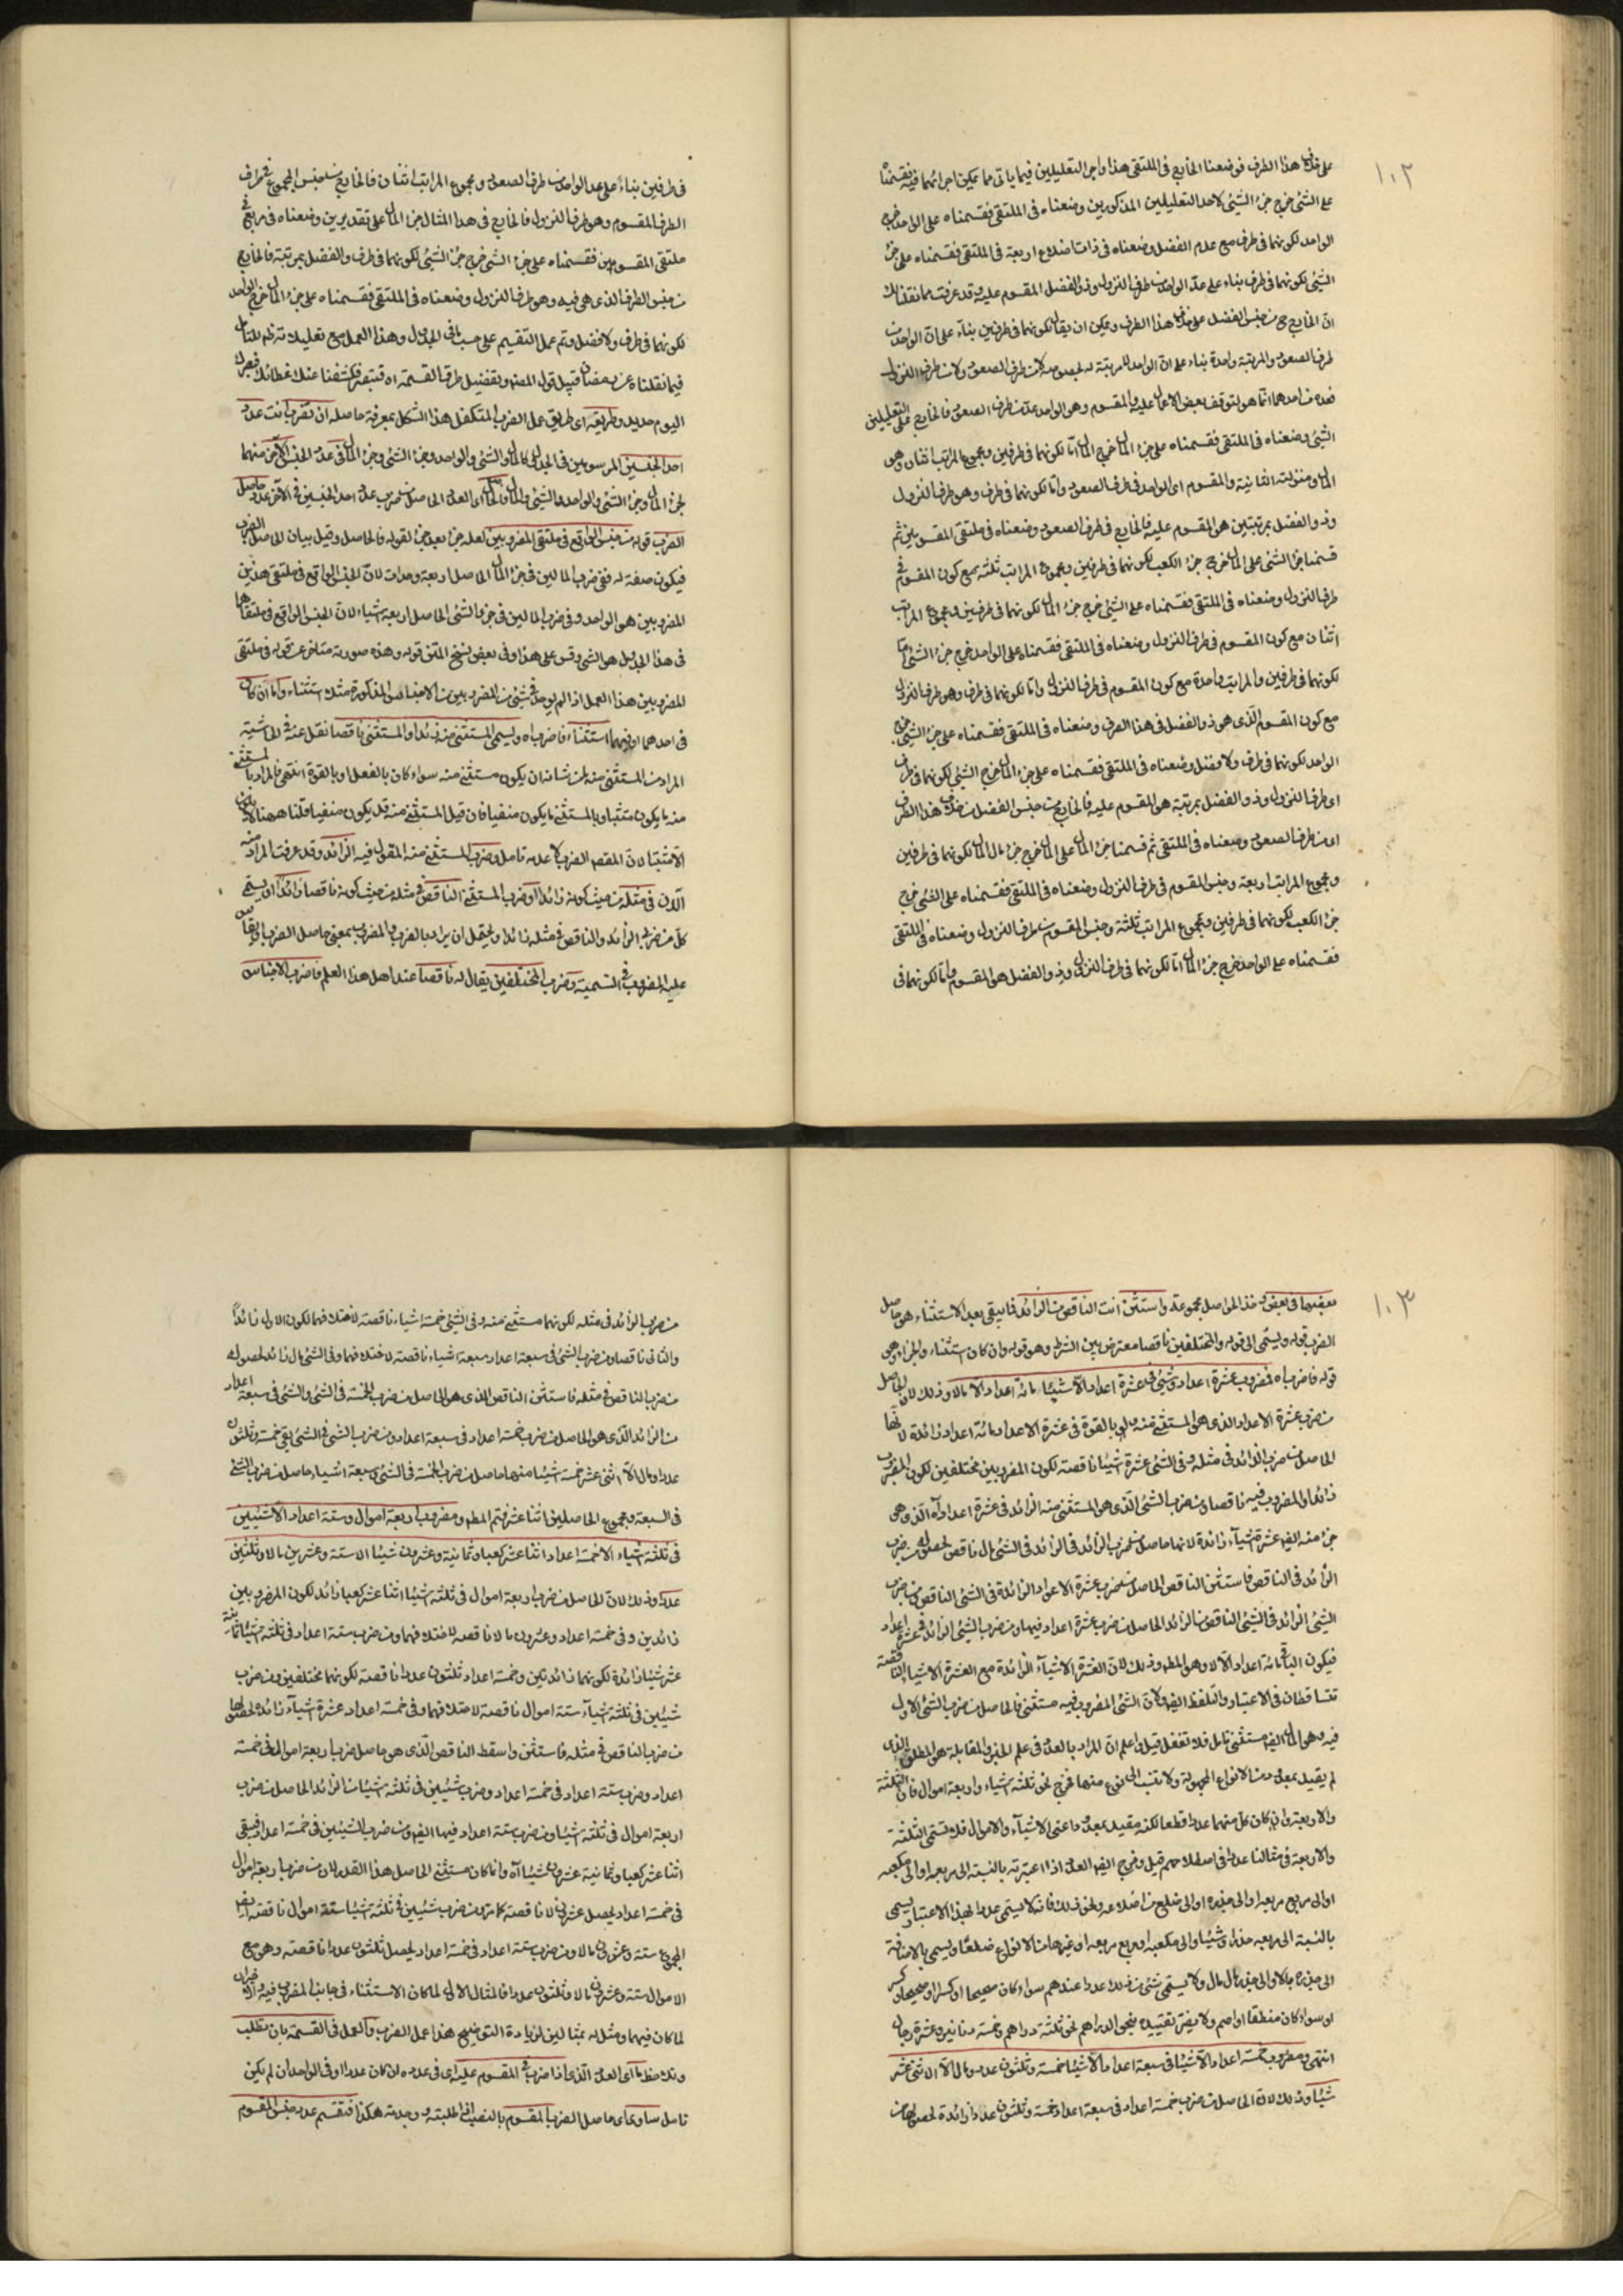 ١٠٢
هذا الطرف فوضعنا الخارج فى الملتقى هذا واجر التعليلين فيما ياتى مما يمكن اجرائهما فيه فقسمناه
على الشئ خرج جزء الشئ لاحد التعليلين المذكورين وضعناه فى الملتقى فقسمناه على الواحد خرج
الواحد لكونهما فى طرف مع عدم الفضل وضعناه فى ذات اضلاع اربعة فى الملتقى فقسمناه على جزء
الشئ لكونهما فى طرف بناء على عد الواحد من طرف النزول وذو الفضل المقسوم عليه وقد عرفت مما نقلنا لك
ان الخارج ح من جنس الفضل على خلاف هذا الطرف ويمكن ان يقال لكونهما فى طرفين بناء على ان الواحد من
طرف الصعود والمرتبة واحدة بناء على ان الواحد لا مرتبة له بخصوصه لا من طرف الصعود ولا من طرف النزول
الشئ وضعناه فى الملتقى فقسمناه على جزء المال خرج المال اما لكونهما فى طرفين ومجموع المراتب اثنان وهو
المال ومنزلته الثانية والمقسوم اى الواحد فى طرف الصعود واما لكونهما فى طرف وهو طرف النزول
وذو الفضل بمرتبتين هو المقسوم عليه فالخارج فى طرف الصعود وضعناه فى ملتقى المقسومين ثم
قسمنا جزء الشئ على المال خرج جزء الكعب لكونهما فى طرفين ومجموع المراتب ثلثة مع كون المقسوم فى
طرف النزول وضعناه فى الملتقى فقسمناه على الشئ خرج جزء المال لكونهما فى طرفين ومجموع المراتب
اثنان مع كون المقسوم فى طرف النزول وضعناه فى الملتقى فقسمناه على الواحد خرج جزء الشئ اما
لكونهما فى طرفين والمراتب واحدة مع كون المقسوم فى طرف النزول واما لكونهما فى طرف وهو طرف النزول
مع كون المقسوم الذى هو ذو الفضل فى هذا الطرف وضعناه فى الملتقى فقسمناه على جزء الشئ خرج
الواحد لكونهما فى طرف ولا فضل وضعناه فى الملتقى فقسمناه على جزء المال خرج الشئ لكونهما فى طرف
اى طرف النزول وذو الفضل بمرتبة هو المقسوم عليه فالخارج من جنس الفضل من خلاف هذا الطرف
اى من طرف الصعود وضعناه فى الملتقى ثم قسمنا جزء المال على المال خرج جزء مال المال لكونهما فى طرفين
ومجموع المراتب اربعة وجنس المقسوم فى طرف النزول وضعناه فى الملتقى فقسمناه على الشئ خرج
جزء الكعب لكونهما فى طرفين ومجموع المراتب ثلثة وجنس المقسوم من طرف النزول وضعناه فى الملتقى
فقسمناه على الواحد خرج جزء المال اما لكونهما فى طرف النزول وذو الفضل هو المقسوم واما لكونهما فى
فى طرفين بناء على عد الواحد من طرف الصعود ومجموع المراتب اثنان فالخارج من جنس المجموع فى طرف
الطرف المقسوم وهو طرف النزول فالخارج فى هذا المثال جزء المال على تقديرين وضعناه فى مربع فى
ملتقى المقسومين فقسمناه على جزء الشئ خرج جزء الشئ لكونهما فى طرف والفضل بمرتبة فالخارج
من جنس الطرف الذى هى فيه وهو طرف النزول وضعناه فى الملتقى فقسمناه على جزء المال خرج الواحد
لكونهما فى طرف ولا فضل وتم عمل التقسيم على حسب ما فى الجدول وهذا العمل مع تعليلاته تظهر للمتأمل
فيما نقلناه عن رمضان قبيل قول المصنف وتفضيل طرف القسمة اه فتبصر فكشفنا عنك غطائك فبصرك
اليوم حديد وطريقه اى طريق عمل الضرب المتكفل هذا الشكل بمعرفة حاصله ان تضرب انت عدد
احد الجنسين المرسومين فى الجدول كالمال والشئ والواحد وجزء الشئ وجزء المال فى عدد الجنس الآخر منهما
لجزء المال وجزء الشئ والواحد والشئ والمال فالحاصل اى العدد الحاصل من ضرب عدد احد الجنسين فى الآخر عدد حاصل
الضرب قوله من جنس الواقع فى ملتقى المضروبين لعله خبر بعد خبر لقوله فالحاصل وقيل بيان لحاصل الضرب
فيكون صفة له ففى ضرب المالين فى جزء المال الحاصل اربعة وحدات لان الجنس الواقع فى ملتقى هذين
المضروبين هو الواحد وفى ضرب المالين فى جزء الشئ الحاصل اربعة اشياء لان الجنس الواقع فى ملتقاهما
فى هذا الجدول هو الشئ وقس على هذا وفى بعض نسخ المتن قوله وهذه صورته متاخر عن قوله فى ملتقى
المضروبين هذا العمل اذا لم يوجد فى شئ من المضروبين من الاجناس المذكورة مثلا استثناء واما ان كان
فى احدهما او فيهما استثناء فاضرباه ويسمى المستثنى منه زائدا والمستثنى ناقصا نقل عنه فى الحاشية
المراد من المستثنى منه ما من شانه ان يكون مستثنى منه سواء كان بالفعل او بالقوة انتهى فالمراد بالمستثنى
منه ما يكون مثبتا وبالمستثنى ما يكون منفيا فان قيل المستثنى منه قد يكون منفيا قلنا ههنا لا يكون
الا مثبتا لان المقصد الضرب لا عدمه تامل وضرب المستثنى منه المقول فيه الزائد وقد عرفت المراد منه
الآن فى مثله من حيث كونه زائدا وضرب المستثنى الناقص فى مثله من حيث كونه ناقصا زائدا اى يسمى
كل من ضربى الزائد والناقص فى مثله زائدا ويحتمل ان يراد بالضرب المضروب بمعنى حاصل الضرب
عليه المضروب فى التسمية وضرب المختلفين يقال له ناقصا عند اهل هذا العلم فاضرب الاجناس
١٠٣
بعضها فى بعض وخذ الحواصل مجموعة واستثن انت الناقص من الزائد فما يبقى بعد الاستثناء هو حاصل
الضرب قوله ويسمى الى قوله والمختلفين ناقصا معترض بين الشرط وهو قوله وان كان استثناء والجزاء وهو
قوله فاضرباه فمضروب عشرة اعداد وشئ فى عشرة اعداد الا شيئا مائة اعداد الا مالا وذلك لان الحاصل
من ضرب عشرة الاعداد الذى هو المستثنى منه ولو بالقوة فى عشرة الاعداد مائة اعداد زائدة لانها
الحاصل من ضرب الزائد فى مثله وفى الشئ عشرة اشياء ناقصة لكون المضروبين مختلفين لكون المضروب
زائدا والمضروب فيه ناقصا ومن ضرب الشئ الذى هو المستثنى منه الزائد فى عشرة اعداد اه الذى هو
جزء منه ايضا عشرة اشياء زائدة لانها حاصل من ضرب الزائد فى الزائد فى الشئ مال ناقص لحصوله من ضرب
الزائد فى الناقص فاستثن الناقص الحاصل من ضرب عشرة الاعداد الزائدة فى الشئ الناقص ومن ضرب
الشئ الزائد فى الشئ الناقص من الزائد الحاصل من ضرب عشرة اعداد فيها ومن ضرب الشئ الزائد فى عشرة اعداد
فيكون الباقى مائة اعداد الا مالا وهو المطلوب وذلك لان العشرة الاشياء الزائدة مع العشرة الاشياء الناقصة
تتساقطان فى الاعتبار والتلفظ ايضا ولان الشئ المضروب فيه مستثنى فالحاصل من ضرب الشئ الاول
فيه وهو المال ايضا مستثنى تامل فلا تغفل قيل واعلم ان المراد بالعدد فى علم الجبر والمقابلة هو المطلق الذى
لم يقيد بمعدود من الانواع المجهولة ولا تنسب الى نوع منها فخرج نحو ثلثة اشياء واربعة اموال فان الثلثة
والاربعة وان كان كل منهما عددا قطعا لكنه مقيد بمعدود اعنى الاشياء والاموال فلا تسمى الثلثة
والاربعة فى مثالنا عددا فى اصطلاحهم قيل وخرج ايضا العدد اذا اعتبرته بالنسبة الى مربعه او الى مكعبه
او الى مربع مربعه او الى جذره او الى ضلع من اضلاعه ونحو ذلك فانه لا يسمى عددا بهذا الاعتبار بل يسمى
بالنسبة الى مربعه جذرا وشيئا والى مكعبه او مربع مربعه او غيرهما من الانواع ضلعا ويسمى بالاضافة
الى جذره مالا والى جذر مال مال ولا يسمى شئ من ذلك عددا عندهم سواء كان صحيحا او كسرا او صحيحا وكسرا
او سواء كان منطقا او اصم ولا يضر تقييده بنحو الدراهم نحو ثلثة دراهم وخمسة دنانير وعشرة رجال
انتهى ومضروب خمسة اعداد الا شيئا فى سبعة اعداد الا شيئا خمسة وثلثون عددا ومالا الا اثنى عشر
شيئا وذلك لان الحاصل من ضرب خمسة اعداد فى سبعة اعداد خمسة وثلثون عددا زائدة لحصولها من
من ضرب الزائد فى مثله لكونهما مستثنى منه وفى الشئ خمسة اشياء ناقصة لاختلافهما لكون الاول زائدا
والثانى ناقصا ومن ضرب الشئ فى سبعة اعداد سبعة اشياء ناقصة لاختلافهما وفى الشئ مال زائد لحصوله
من ضرب الناقص فى مثله فاستثن الناقص الذى هو الحاصل من ضرب الخمسة فى الشئ والشئ فى سبعة اعداد
من الزائد الذى هو الحاصل من ضرب خمسة اعداد فى سبعة اعداد ومن ضرب الشئ فى الشئ يبقى خمسة وثلثون
عددا ومال الا اثنى عشر شيئا خمسة منها حاصل من ضرب الخمسة فى الشئ وسبعة اشياء حاصل من ضرب الشئ
فى السبعة ومجموع الحاصلين اثنا عشر فتم المطلوب ومضروب اربعة اموال وستة اعداد الا شيئين
فى ثلثة اشياء الا خمسة اعداد اثنا عشر كعبا وثمانية وعشرون شيئا الا ستة وعشرين مالا وثلثين
عددا وذلك لان الحاصل من ضرب اربعة اموال فى ثلثة اشياء اثنا عشر كعبا زائد لكون المضروبين
زائدين وفى خمسة اعداد وعشرون مالا ناقصة لاختلافهما ومن ضرب ستة اعداد فى ثلثة اشياء ثمانية
عشر شيئا زائدة لكونهما زائدتين وخمسة اعداد ثلثون عددا ناقصة لكونهما مختلفين ومن ضرب
شيئين فى ثلثة اشياء ستة اموال ناقصة لاختلافهما وفى خمسة اعداد عشرة اشياء زائدة لحصولها
من ضرب الناقص فى مثله فاستثن واسقط الناقص الذى هو حاصل ضرب اربعة اموال فى خمسة
اعداد وضرب ستة اعداد فى خمسة اعداد وضرب شيئين فى ثلثة اشياء من الزائد الحاصل من ضرب
اربعة اموال فى ثلثة اشياء ومن ضرب ستة اعداد فيها ايضا ومن ضرب الشيئين فى خمسة اعداد فيبقى
اثنا عشر كعبا وثمانية عشرون شيئا اه وانما كان مستثنى الحاصل هذا القدر لان من ضرب اربعة اموال
فى خمسة اعداد يحصل عشرون مالا ناقصة كما مر ومن ضرب شيئين فى ثلثة اشياء ستة اموال ناقصة ايضا
المجموع ستة وعشرون مالا ومن ضرب ستة اعداد فى خمسة اعداد يحصل ثلثون عددا ناقصة وهو مع
الاموال ستة وعشرون مالا وثلثون عددا فالمثال الاول لما كان الاستثناء فى جانب المضروب فيه
لما كان فيهما ومثل له بمثالين لزيادة التوضيح هذا عمل الضرب والعمل فى القسمة بان تطلب
وتلاحظ ما اى العدد الذى اذا ضرب فى المقسوم عليه اى فى عدده ان كان عددا وفى الواحد ان لم يكن
تامل ساوى ما اى حاصل الضرب المقسوم بالنصب اذا طلبته ووجدته هكذا فتقسم عدد جنس المقسوم